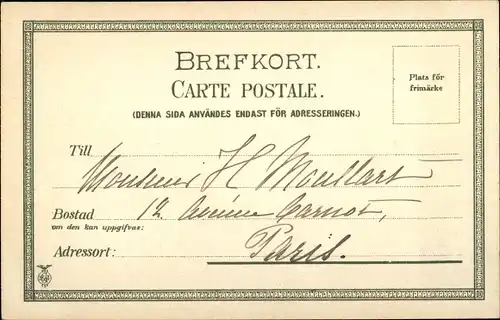 BREFKORT.
CARTE POSTALE.
Plats för
frimärke
(DENNA SIDA ANVÄNDES ENDAST FÖR ADRESSERINGEN.)
Till Monsieur H Moullart
Bostad 12 Avenue Carnot,
om den kan uppgifvas:
Adressort: Paris.